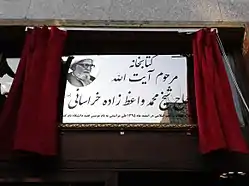 کتابخانه
مرحوم آیت الله
حاج شیخ محمد واعظ زاده خراسانی